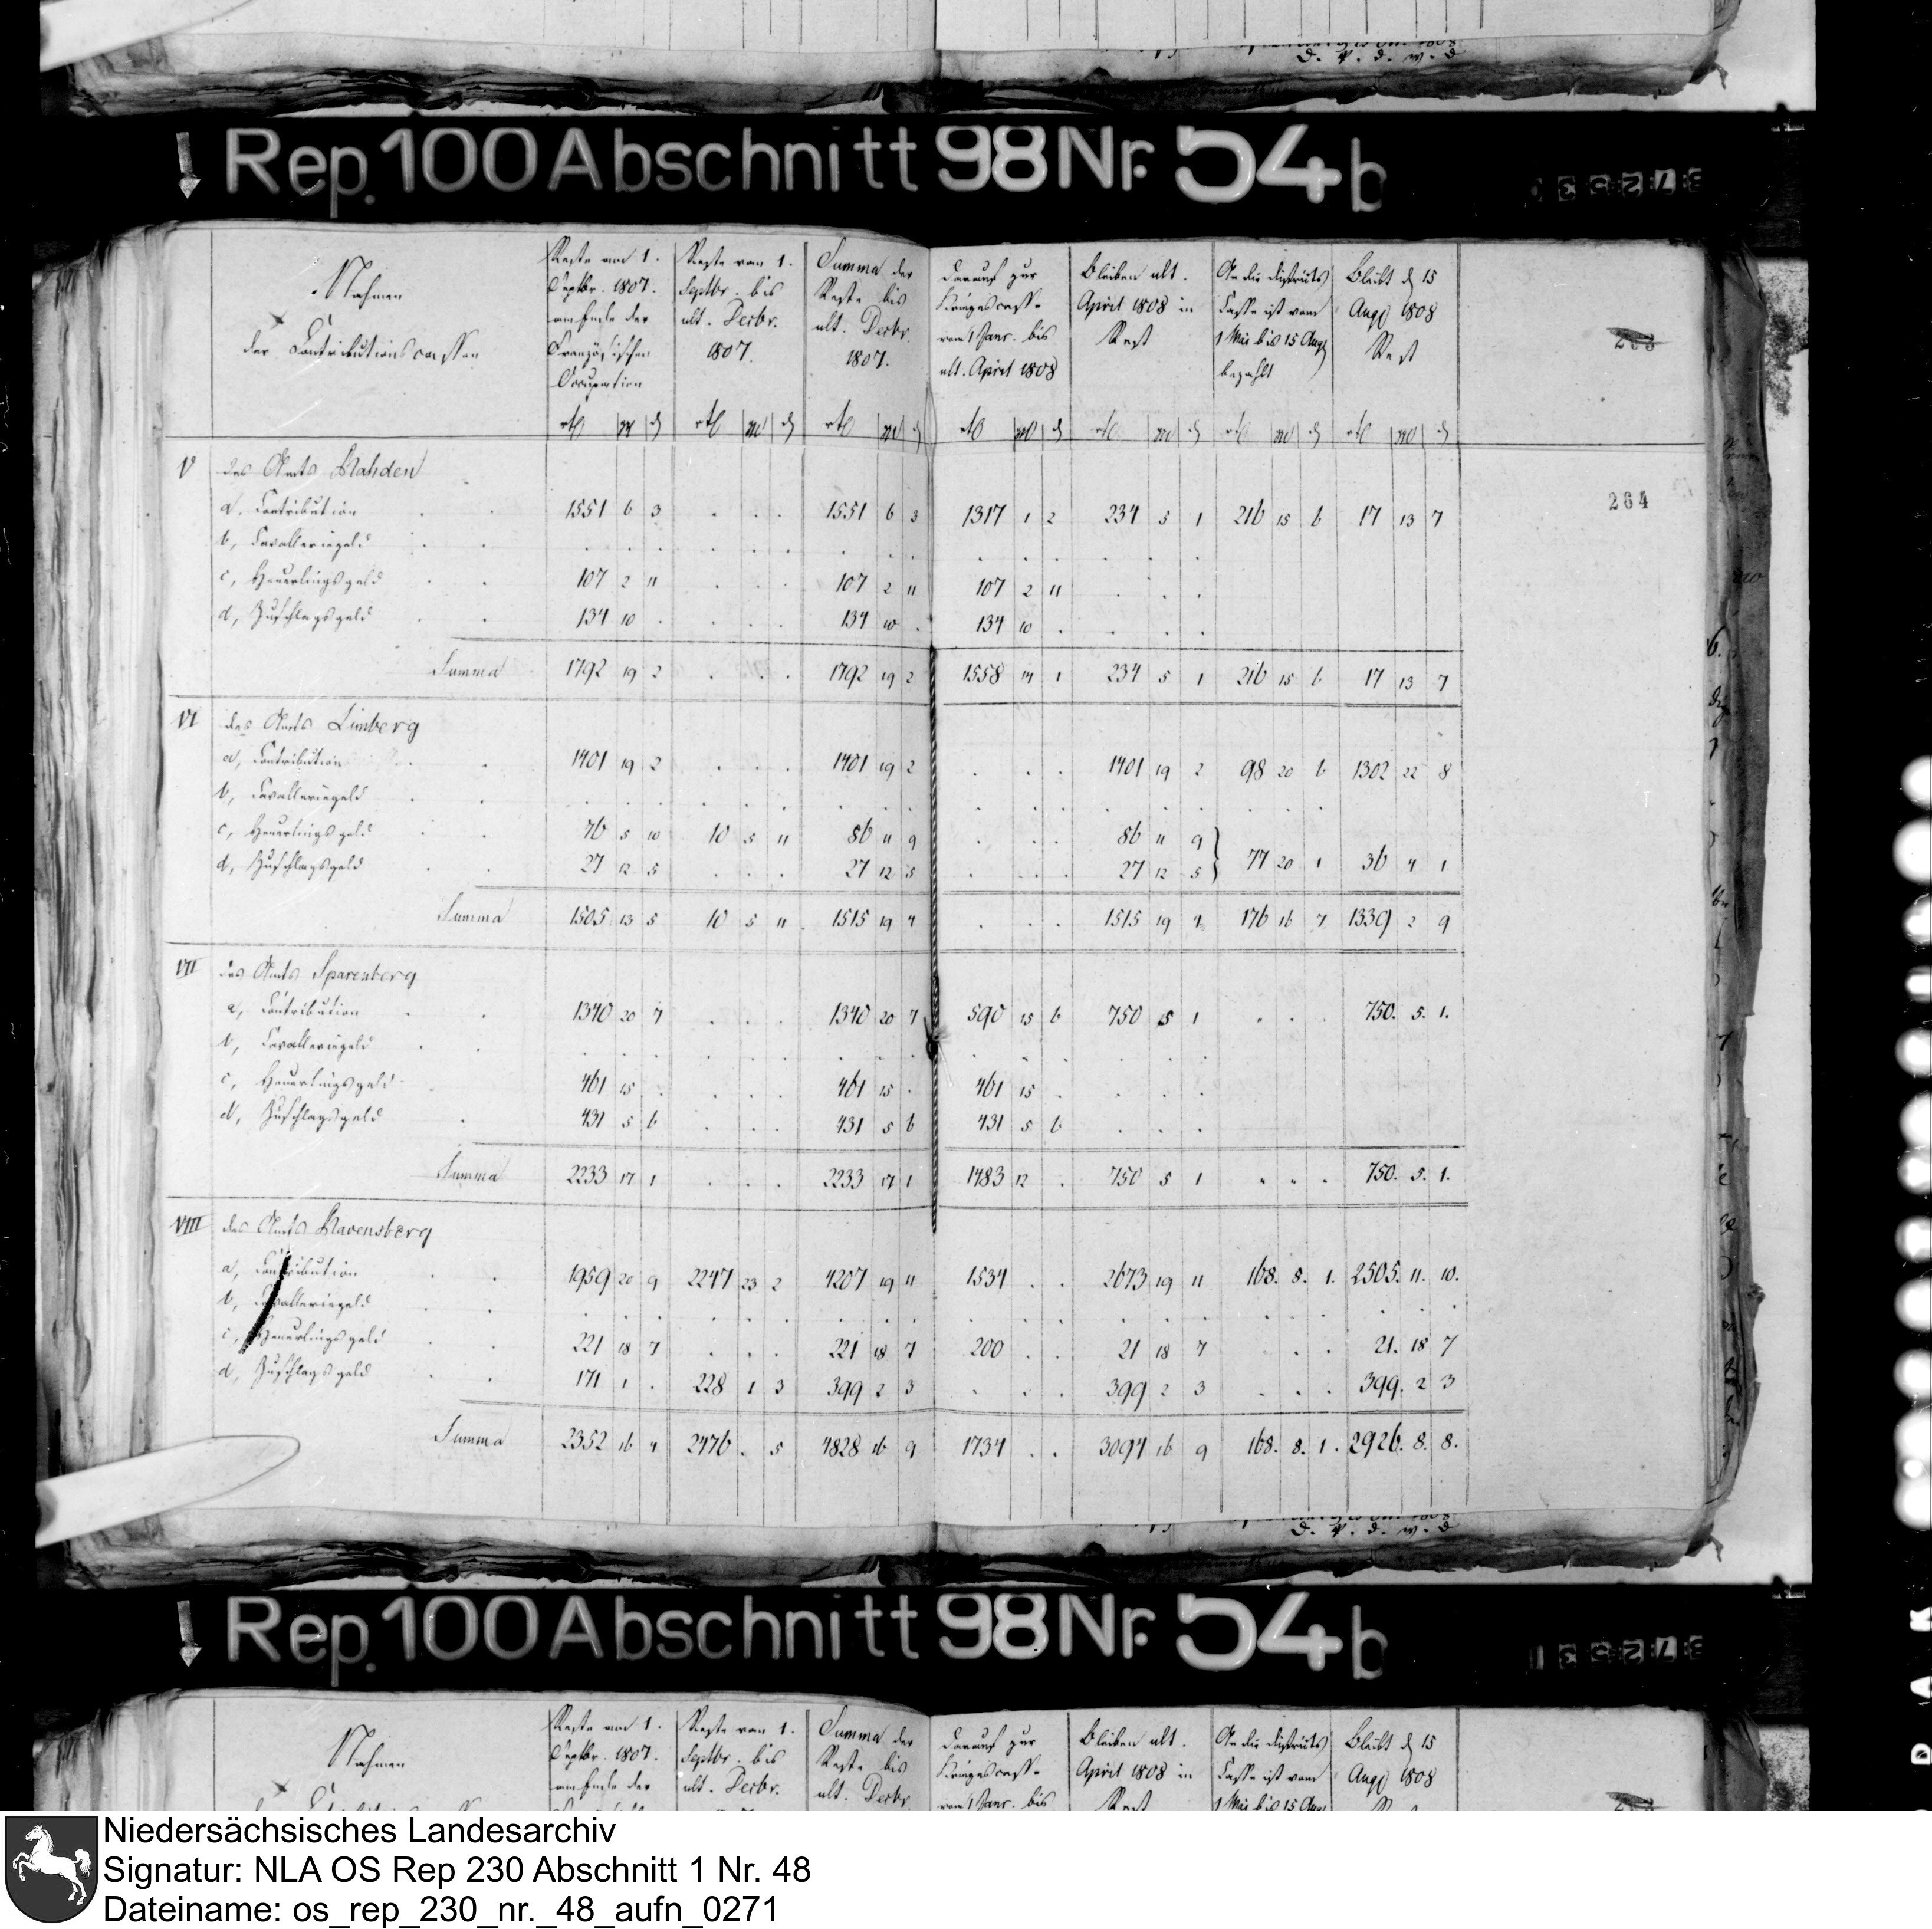 D. V. d. w. d
Rep. 100 Abschnitt 98 Nr. 54 b
Nahmen
der Contributionscassen
Reste vor 1. Septbr. 1807. am Ende der Französischen Occupation
Reste von 1. Septbr. bis ult. Decbr. 1807.
Summa der Reste bis ult. Decbr. 1807.
Darauf zur Kriegescasse vom 1 Janr. bis ult. April 1808
Bleiben ult. April 1808 in Rest
An die Districts Casse ist vom 1 Mai bis 15 Aug bezahlt
Bleibt d 15 Aug 1808 Rest
264
V des Amts Rahden
a, Contribution 1551 6 3 . . . 1551 6 3 1317 1 2 234 5 1 216 15 6 17 13 7
b, Cavalleriegeld
c, Heuerlingsgeld 107 2 11 . . . 107 2 11 107 2 11 . . .
d, Zuschlagsgeld 134 10 . . . . 134 10 . 134 10 . . . .
Summa 1792 19 2 . . . 1792 19 2 1558 14 1 234 5 1 216 15 6 17 13 7
VI des Amts Limberg
a, Contribution 1401 19 2 . . . 1401 19 2 . . . 1401 19 2 98 20 6 1302 22 8
b, Cavalleriegeld
c, Heuerlingsgeld 76 5 10 10 5 11 86 11 9 . . . 86 11 9
d, Zuschlagsgeld 27 12 5 . . . 27 12 5 . . . 27 12 5 } 77 20 1 36 4 1
Summa 1505 13 5 10 5 11 1515 19 4 . . . 1515 19 4 176 16 7 1339 2 9
VII des Amts Sparenberg
a, Contribution 1340 20 7 . . . 1340 20 7 590 15 6 750 5 1 . . . 750. 5. 1.
b, Cavalleriegeld
c, Heuerlingsgeld 461 15 . . . . 461 15 . 461 15 . . . .
d, Zuschlagsgeld 431 5 6 . . . 431 5 6 431 5 6 . . .
Summa 2233 17 1 . . . 2233 17 1 1483 12 . 750 5 1 . . . 750. 5. 1.
VIII des Amts Ravensberg
a, Contribution 1959 20 9 2247 23 2 4207 19 11 1534 . . 2673 19 11 168. 8. 1. 2505. 11. 10.
b, Cavalleriegeld
c, Heuerlingsgeld 221 18 7 . . . 221 18 7 200 . . 21 18 7 . . . 21. 18 7
d, Zuschlagsgeld 171 1 . 228 1 3 399 2 3 . . . 399 2 3 . . . 399. 2 3
Summa 2352 16 4 2476 . 5 4828 16 9 1734 . . 3094 16 9 168. 8. 1. 2926. 8. 8.
D. V. d. w. d
Rep. 100 Abschnitt 98 Nr. 54 b
Nahmen
Reste vor 1. Septbr. 1807. am Ende der
Reste von 1. Septbr. bis ult. Decbr.
Summa der Reste bis ult. Decbr.
Darauf zur Kriegescasse vom 1 Janr. bis
Bleiben ult. April 1808 in Rest
An die Districts Casse ist vom 1 Mai bis 15 Aug
Bleibt d 15 Aug 1808
Niedersächsisches Landesarchiv
Signatur: NLA OS Rep 230 Abschnitt 1 Nr. 48
Dateiname: os_rep_230_nr._48_aufn_0271